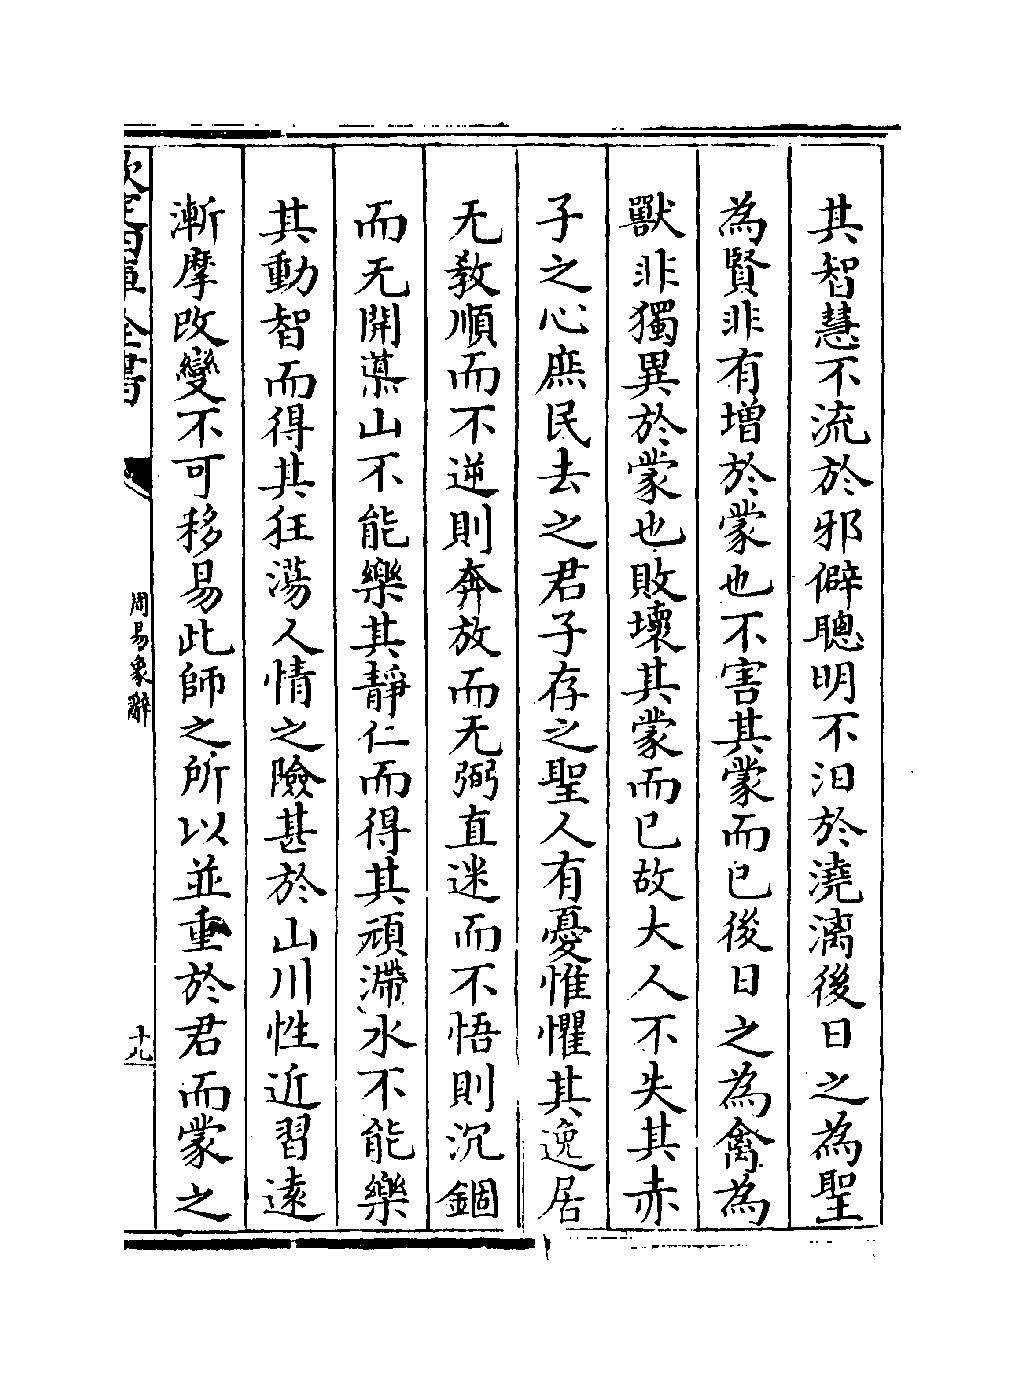 其智慧不流於邪僻聰明不汩於澆漓後日之為聖
為賢非有增於蒙也不害其蒙而已後日之為禽為
獸非獨異於蒙也敗壞其蒙而已故大人不失其赤
子之心庶民去之君子存之聖人有憂惟懼其逸居
无教順而不逆則奔放而无弼直迷而不悟則沉錮
而无開導山不能樂其靜仁而得其頑滯水不能樂
其動智而得其狂蕩人情之險甚於山川性近習遠
漸摩改變不可移易此師之所以並重於君而蒙之
欽定四庫全書
周易象辭
十九